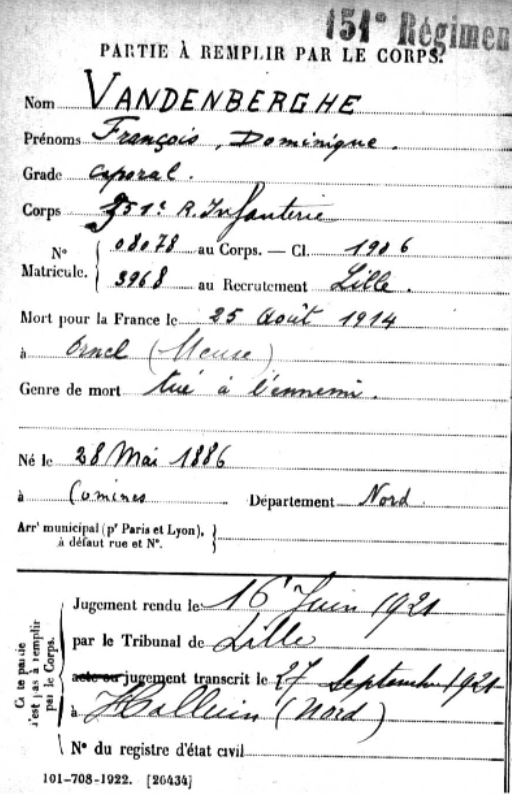 151e Régimen
PARTIE À REMPLIR PAR LE CORPS.
Nom VANDENBERGHE
Prénoms François, Dominique.
Grade caporal.
Corps 351e R. Infanterie
N° Matricule. 08078 au Corps. — Cl. 1906
3968 au Recrutement Lille.
Mort pour la France le 25 Août 1914
à Ornel (Meuse)
Genre de mort tué à l'ennemi.
Né le 28 Mai 1886
à Comines Département Nord
Arrt municipal (pr Paris et Lyon),
à défaut rue et N°.
Cette partie
n'est pas à remplir
par le Corps.
Jugement rendu le 16 Juin 1921
par le Tribunal de Lille
acte ou jugement transcrit le 27 Septembre 1921
à Halluin (Nord)
N° du registre d'état civil
101-708-1922. [26434]